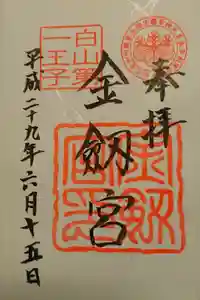 奉拝
白山第
一王子
金劔宮
平成二十九年六月十五日
金劔宮印